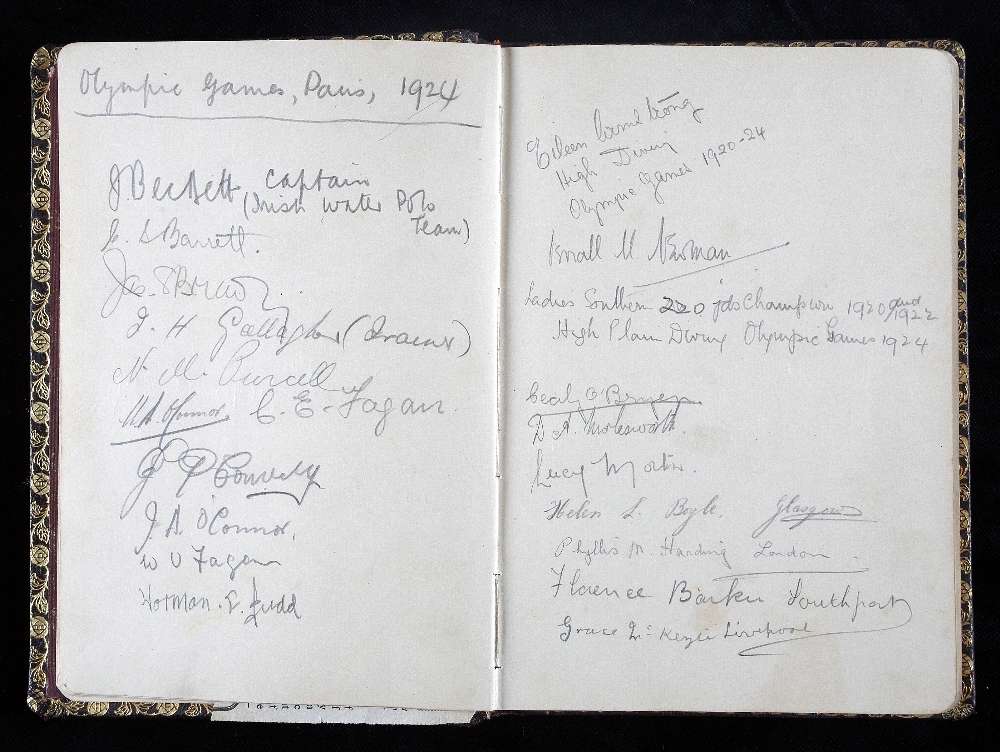 Olympic Games, Paris, 1924
J. Beckett, Captain
(Irish Water Polo
Team)
L. Barrett.
Jas. S Brady
J. H Gallagher (Trainer)
N. M. Purcell
M.A. O'Connor. C. E. Fagan.
J P Convery
J. A. O'Connor.
W U Fagan
Norman. E. Judd
Eileen Armstrong
High Diving
Olympic Games 1920-24
M Newman
Ladies Southern 220 yds Champion 1920 and 1922
High Plain Diving Olympic Games 1924
Cecily O'Bryen
D. A. Molesworth.
Lucy Morton.
Helen L. Boyle. Glasgow
Phyllis M. Harding London.
Florence Barker Southport
Grace McKenzie Liverpool